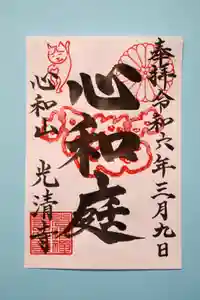 奉拝 令和六年三月九日
心和庭
心和山
光清寺